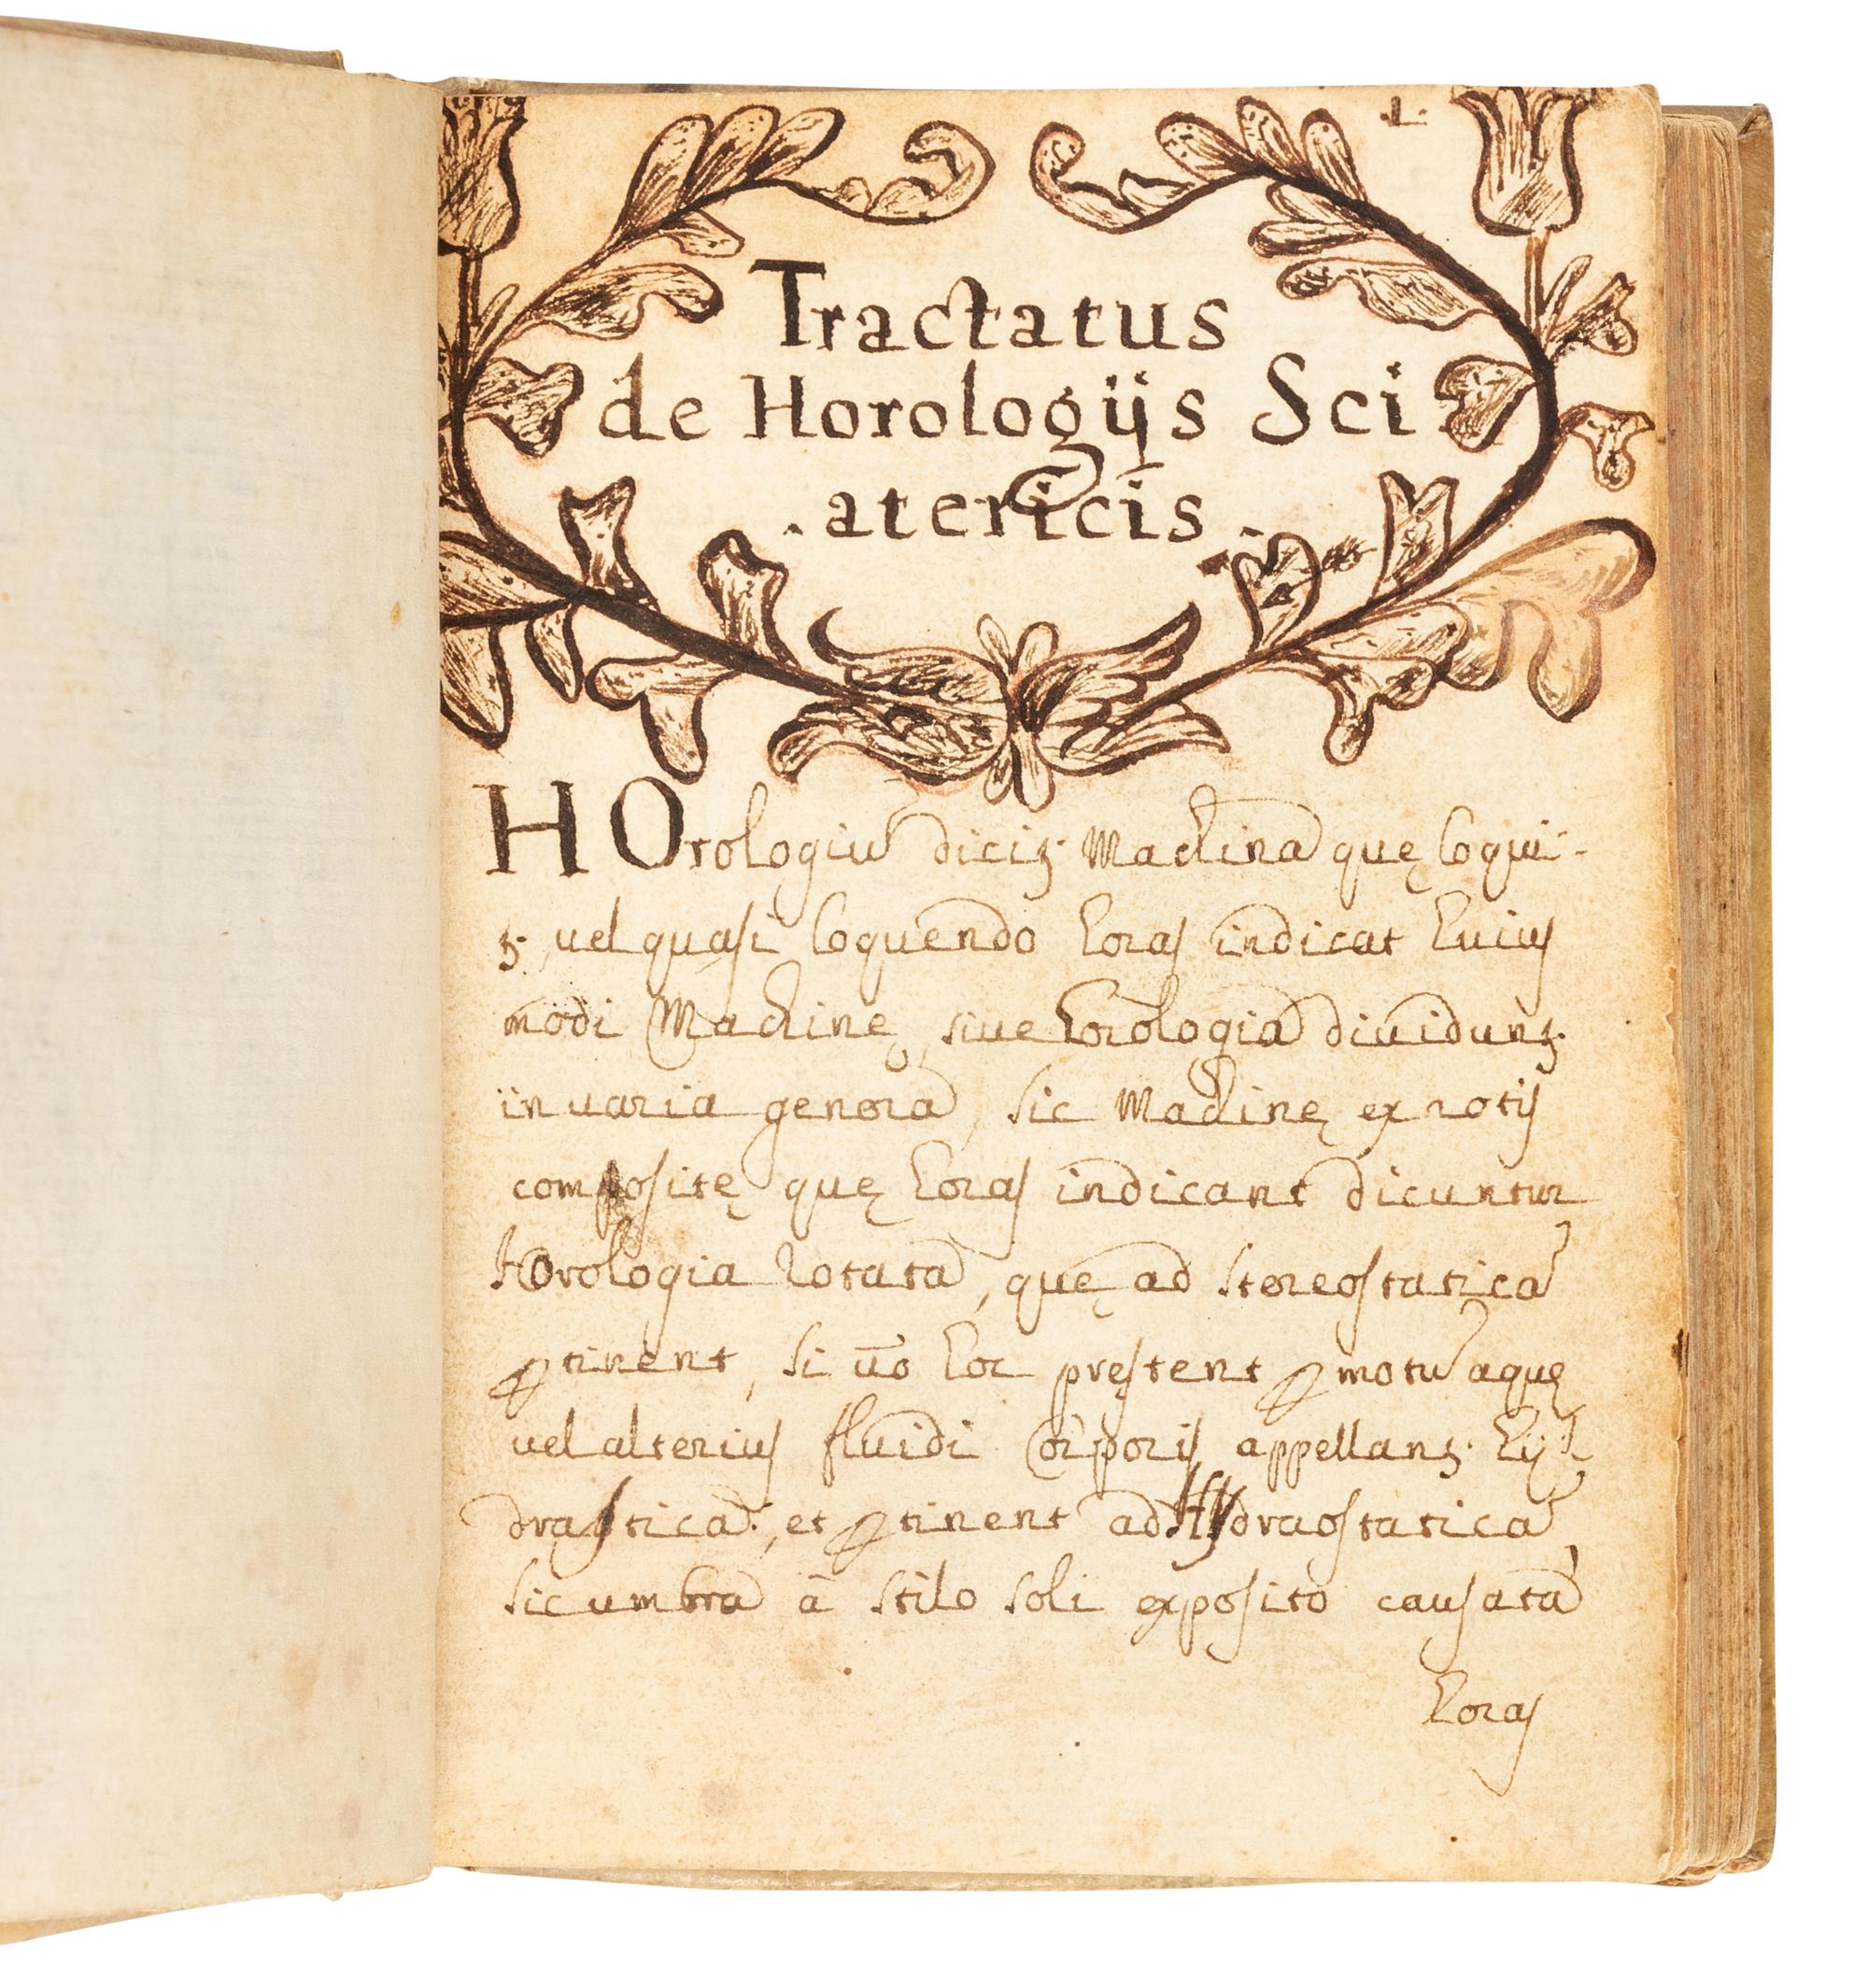 .1.
Tractatus
de Horologijs Sci
. atericis .
HOrologiũ dicitꝫ. Machina quę loqui-
tꝫ. vel quasi loquendo horas indicat huius
modi Machinę, siue horologia diuiduntꝫ.
in uaria genera, sic Machinę ex rotis
compositę quę horas indicant dicuntur
Horologia rotata, quę ad stereostaticã
ꝑtinent, si ũo hoc pręstent ꝑ motũ aquę
uel alterius fluidi Corporis appellantꝫ. hÿ-
drastica: et ꝑtinent ad Hydraostaticã,
sic umbra à stilo soli exposito causata
horas